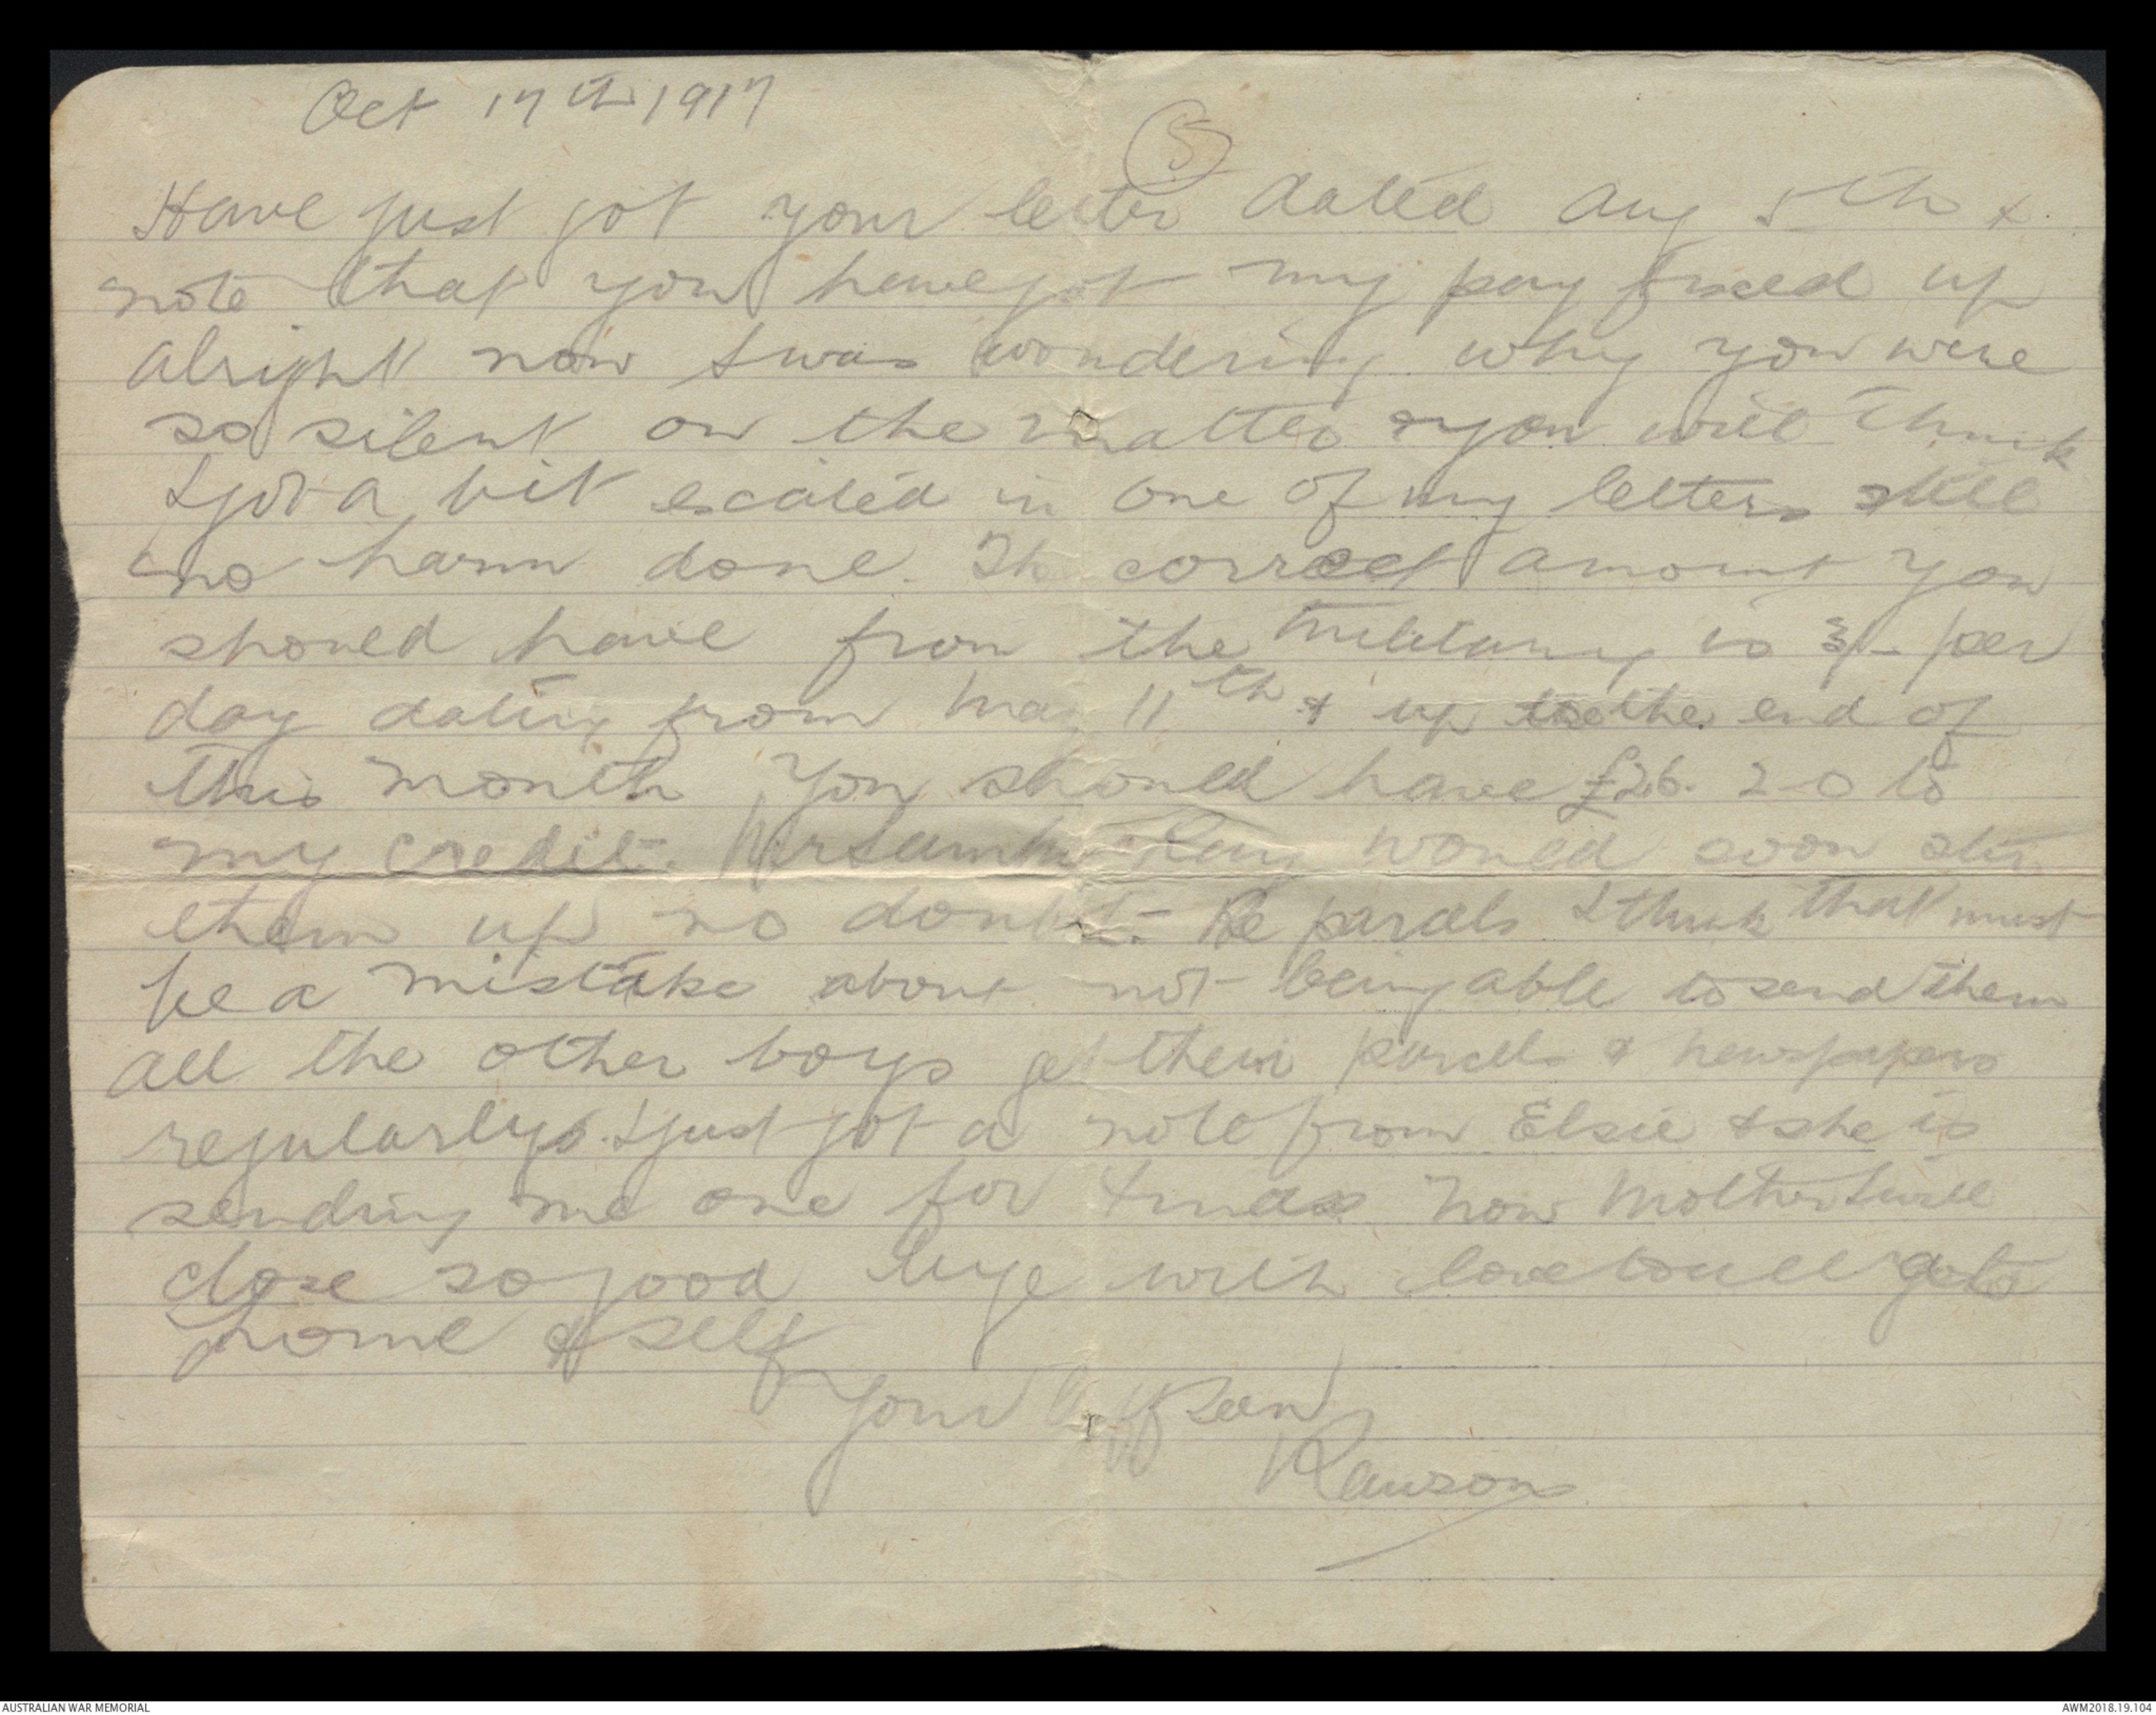 Oct 17th 1917
(5)
Have just got your letter dated Aug 5th &
note that you have got my pay fixed up
alright now I was wondering why you were
so silent on the matter & you will think
I got a bit excited in one of my letters still
no harm done. The correct amount you
should have from the Military is 3/- per
day dating from May 11th & up to the end of
this month you should have £26. 2-0 to
my credit. would soon stir
them up no doubt. Re parcels I think that must
be a mistake about not being able to send them
all the other boys get their parcells & newspapers
regularly. I just got a note from Elsie & she is
sending me one for Xmas Now Mother I will
close so good bye with love to all at
home & self
Your Aff Son
Rawson
AUSTRALIAN WAR MEMORIAL
AWM2018.19.104